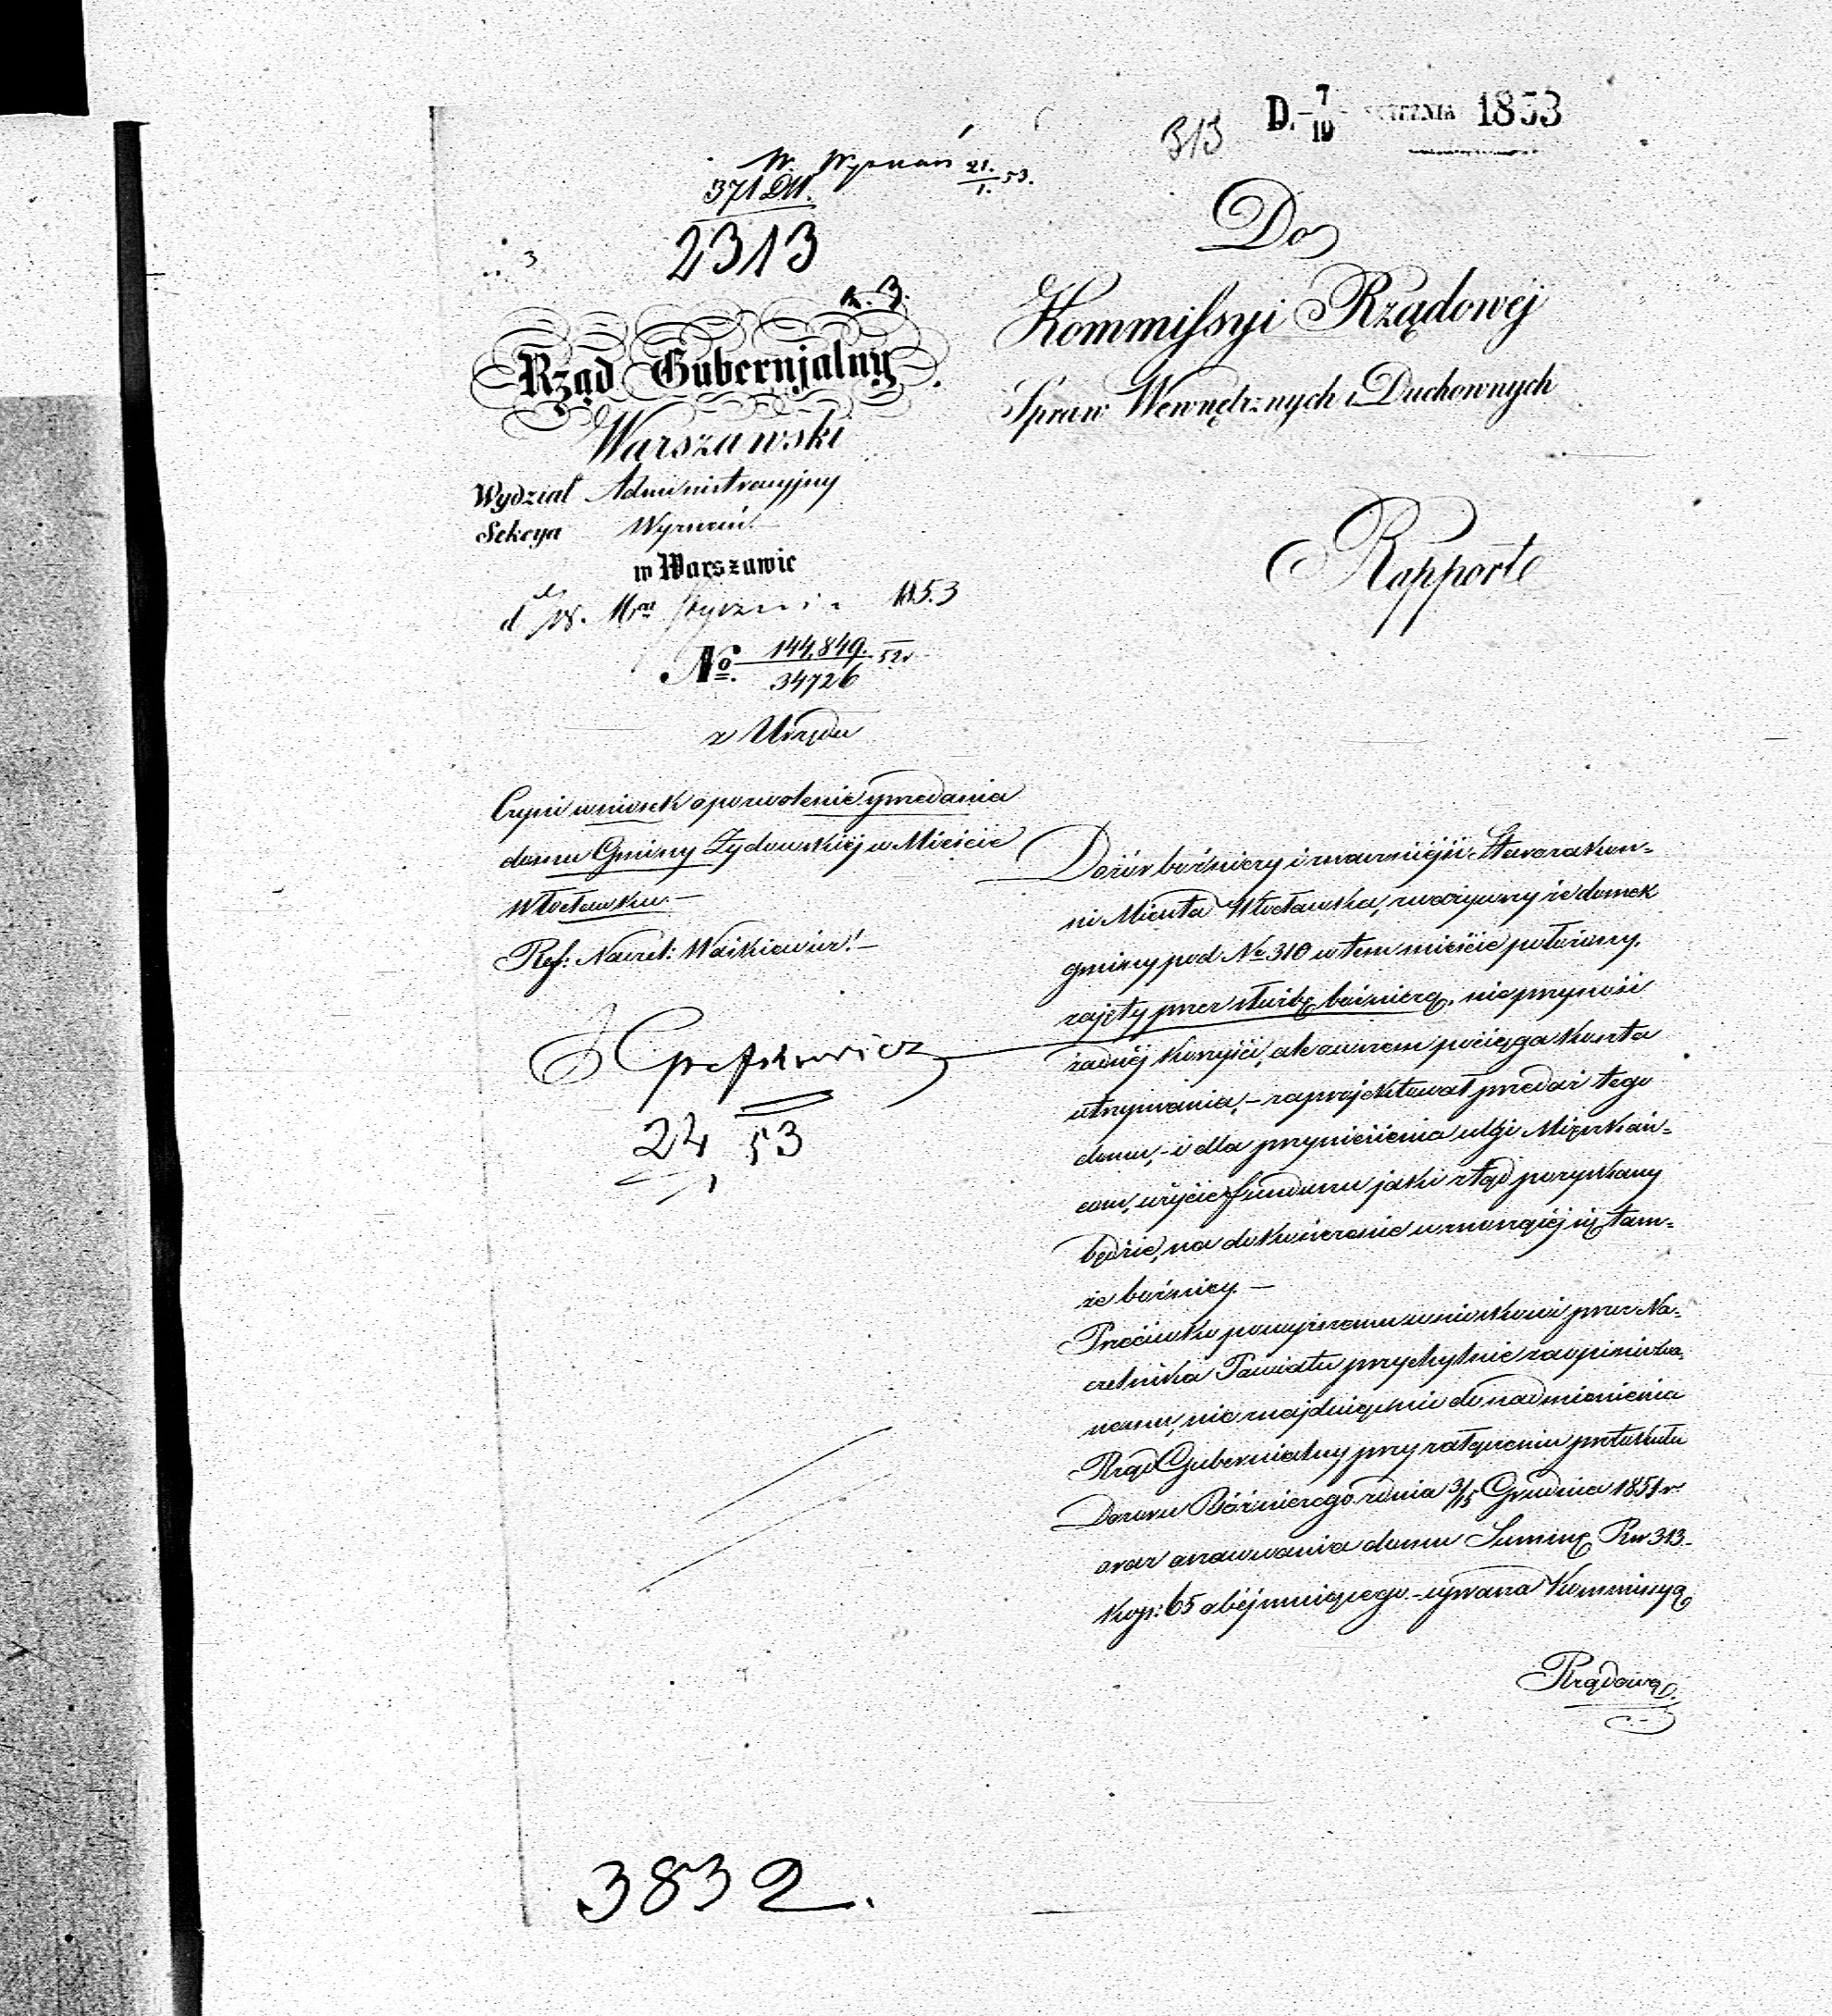 D. 7/19 STYCZNIA 1853
313
W. Wyznań 21./1. 53.
371 DW.
2313
3
Rząd Gubernjalny
Warszawski
Wydział Administracyjny
Sekcya Wyznań
w Warszawie
d 18. Mca Stycznia 1853
No. 144,849./34726 52r
z Urzędu
Czyni wniosek o pozwolenie sprzedania
domu Gminy Żydowskiéj w Mieście
Włocławku.—
Ref: Naczel: Waśkiewicz!—
24 53
1
Do
Kommissyi Rządowéj
Spraw Wewnętrznych i Duchownych
Rapport
Dozór bóźniczy i znaczniejsi Starozakon-
ni Miasta Włocławka, zważywszy że domek
gminny pod No 310 w tem mieście położony,
zajęty przez służbę bóżniczą, nie przynosi
żadnéj korzyści, ale owszem pociąga koszta
utrzymania,— zaprojektował przedaż tego
domu,- i dla przyniesienia ulgi Mieszkań-
com, użycie funduszu jaki ztąd pozyskany
będzie, na dokończenie wznoszącéj się tam-
że bóżnicy.—
Przeciwko powyższemu wnioskowi przez Na-
czelnika Powiatu przychylnie zaopiniowa-
nemu, nie znajdując nic do nadmienienia
Rząd Gubernialny przy załączeniu protokułu
Dozoru Bóżniczego z dnia 3/15 Grudnia 1851 r.
oraz oszacowania domu Summę Rsr 313.
kop: 65 obejmującego.- uprasza Kommissyą
Rządową
3832.